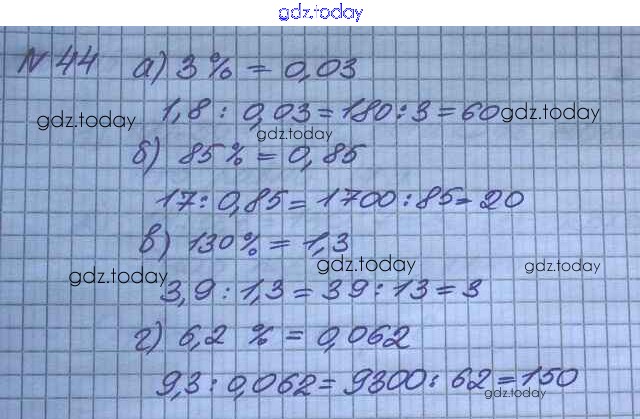 gdz.today
N 44 а) 3% = 0,03
gdz.today 1,8 : 0,03 = 180 : 3 = 60 gdz.today
gdz.today
б) 85% = 0,85
17 : 0,85 = 1700 : 85 = 20
в) 130% = 1,3
gdz.today gdz.today gdz.today
3,9 : 1,3 = 39 : 13 = 3
г) 6,2 % = 0,062
9,3 : 0,062 = 9300 : 62 = 150
gdz.today